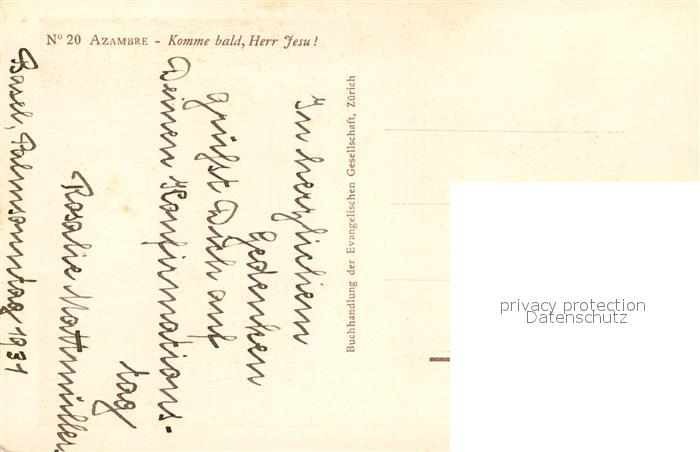 Nº 20 AZAMBRE - Komme bald, Herr Jesu!
Buchhandlung der Evangelischen Gesellschaft, Zürich
In herzlichem
Gedenken
grüßt Dich auf
Deinen Konfirmations-
tag
Rosalie Mattmüller
Basel, Palmsonntag 1931
privacy protection
Datenschutz